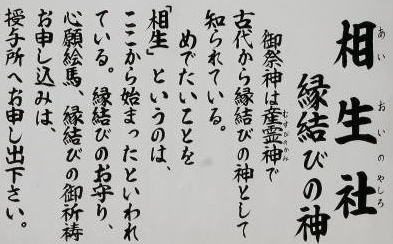 相生社
あいおいのやしろ
縁結びの神
御祭神は産霊神で
むすびのかみ
古代から縁結びの神として
知られている。
めでたいことを
「相生」というのは、
ここから始まったといわれ
ている。縁結びのお守り、
心願絵馬、縁結びの御祈祷
お申し込みは、
授与所へお申し出下さい。